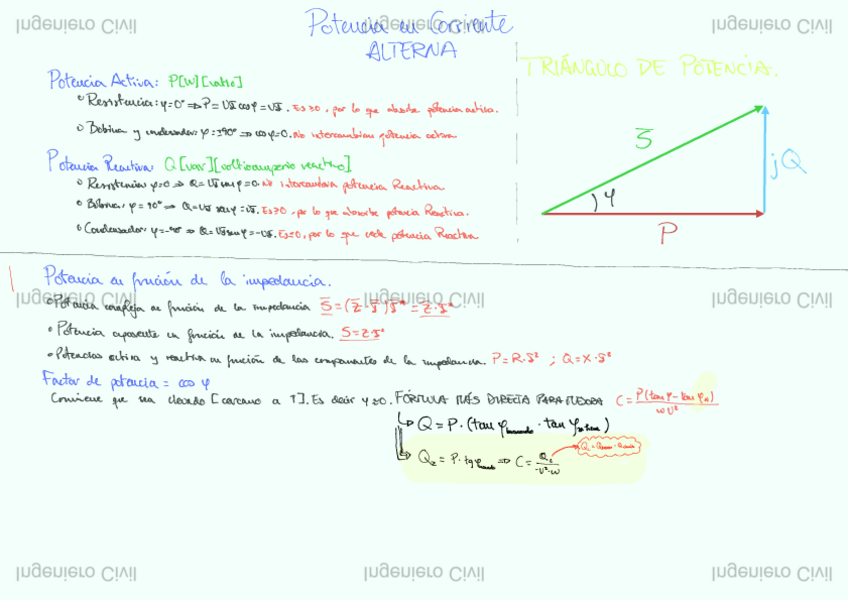 Ingeniero Civil Ingeniero Civil Ingeniero Civil
Potencia en Corriente
ALTERNA
TRIÁNGULO DE POTENCIA.
Potencia Activa: P[W][vatio]
Resistencia: φ=0° ⇒ P = UI cosφ = UI. Es ≥0, por lo que absorbe potencia activa.
Bobina y condensador: φ=±90° ⇒ cosφ=0. No intercambian potencia activa
Potencia Reactiva: Q[var][voltioamperio reactivo]
Resistencia φ=0 ⇒ Q= UI senφ=0. No intercambia potencia Reactiva
Bobina: φ=90° ⇒ Q=UI senφ=UI. Es≥0, por lo que absorbe potencia Reactiva.
Condensador: φ=-90° ⇒ Q=UI senφ=-UI. Es≤0, por lo que cede potencia Reactiva
S
jQ
φ
P
Potencia en función de la impedancia.
Ingeniero Civil Ingeniero Civil Ingeniero Civil
Potencia compleja en función de la impedancia S=(Z·I)I*=Z·I²
Potencia aparente en función de la impedancia. S=Z·I²
Potencias activa y reactiva en función de las componentes de la impedancia. P=R·I² ; Q=X·I²
Factor de potencia = cos φ
Conviene que sea elevado [cercano a 1]. Es decir φ≈0. FÓRMULA MÁS DIRECTA PARA C= P(tanφ-tanφ) / ωU²
Q = P·(tanφ · tanφ)
Q = P·tgφ ⇒ C= Q / -U²·ω
Ingeniero Civil Ingeniero Civil Ingeniero Civil